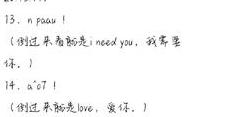 13. n paau !
(倒过来看就是i need you, 我需要
你。)
14. a^o7 !
(倒过来就是love, 爱你。)